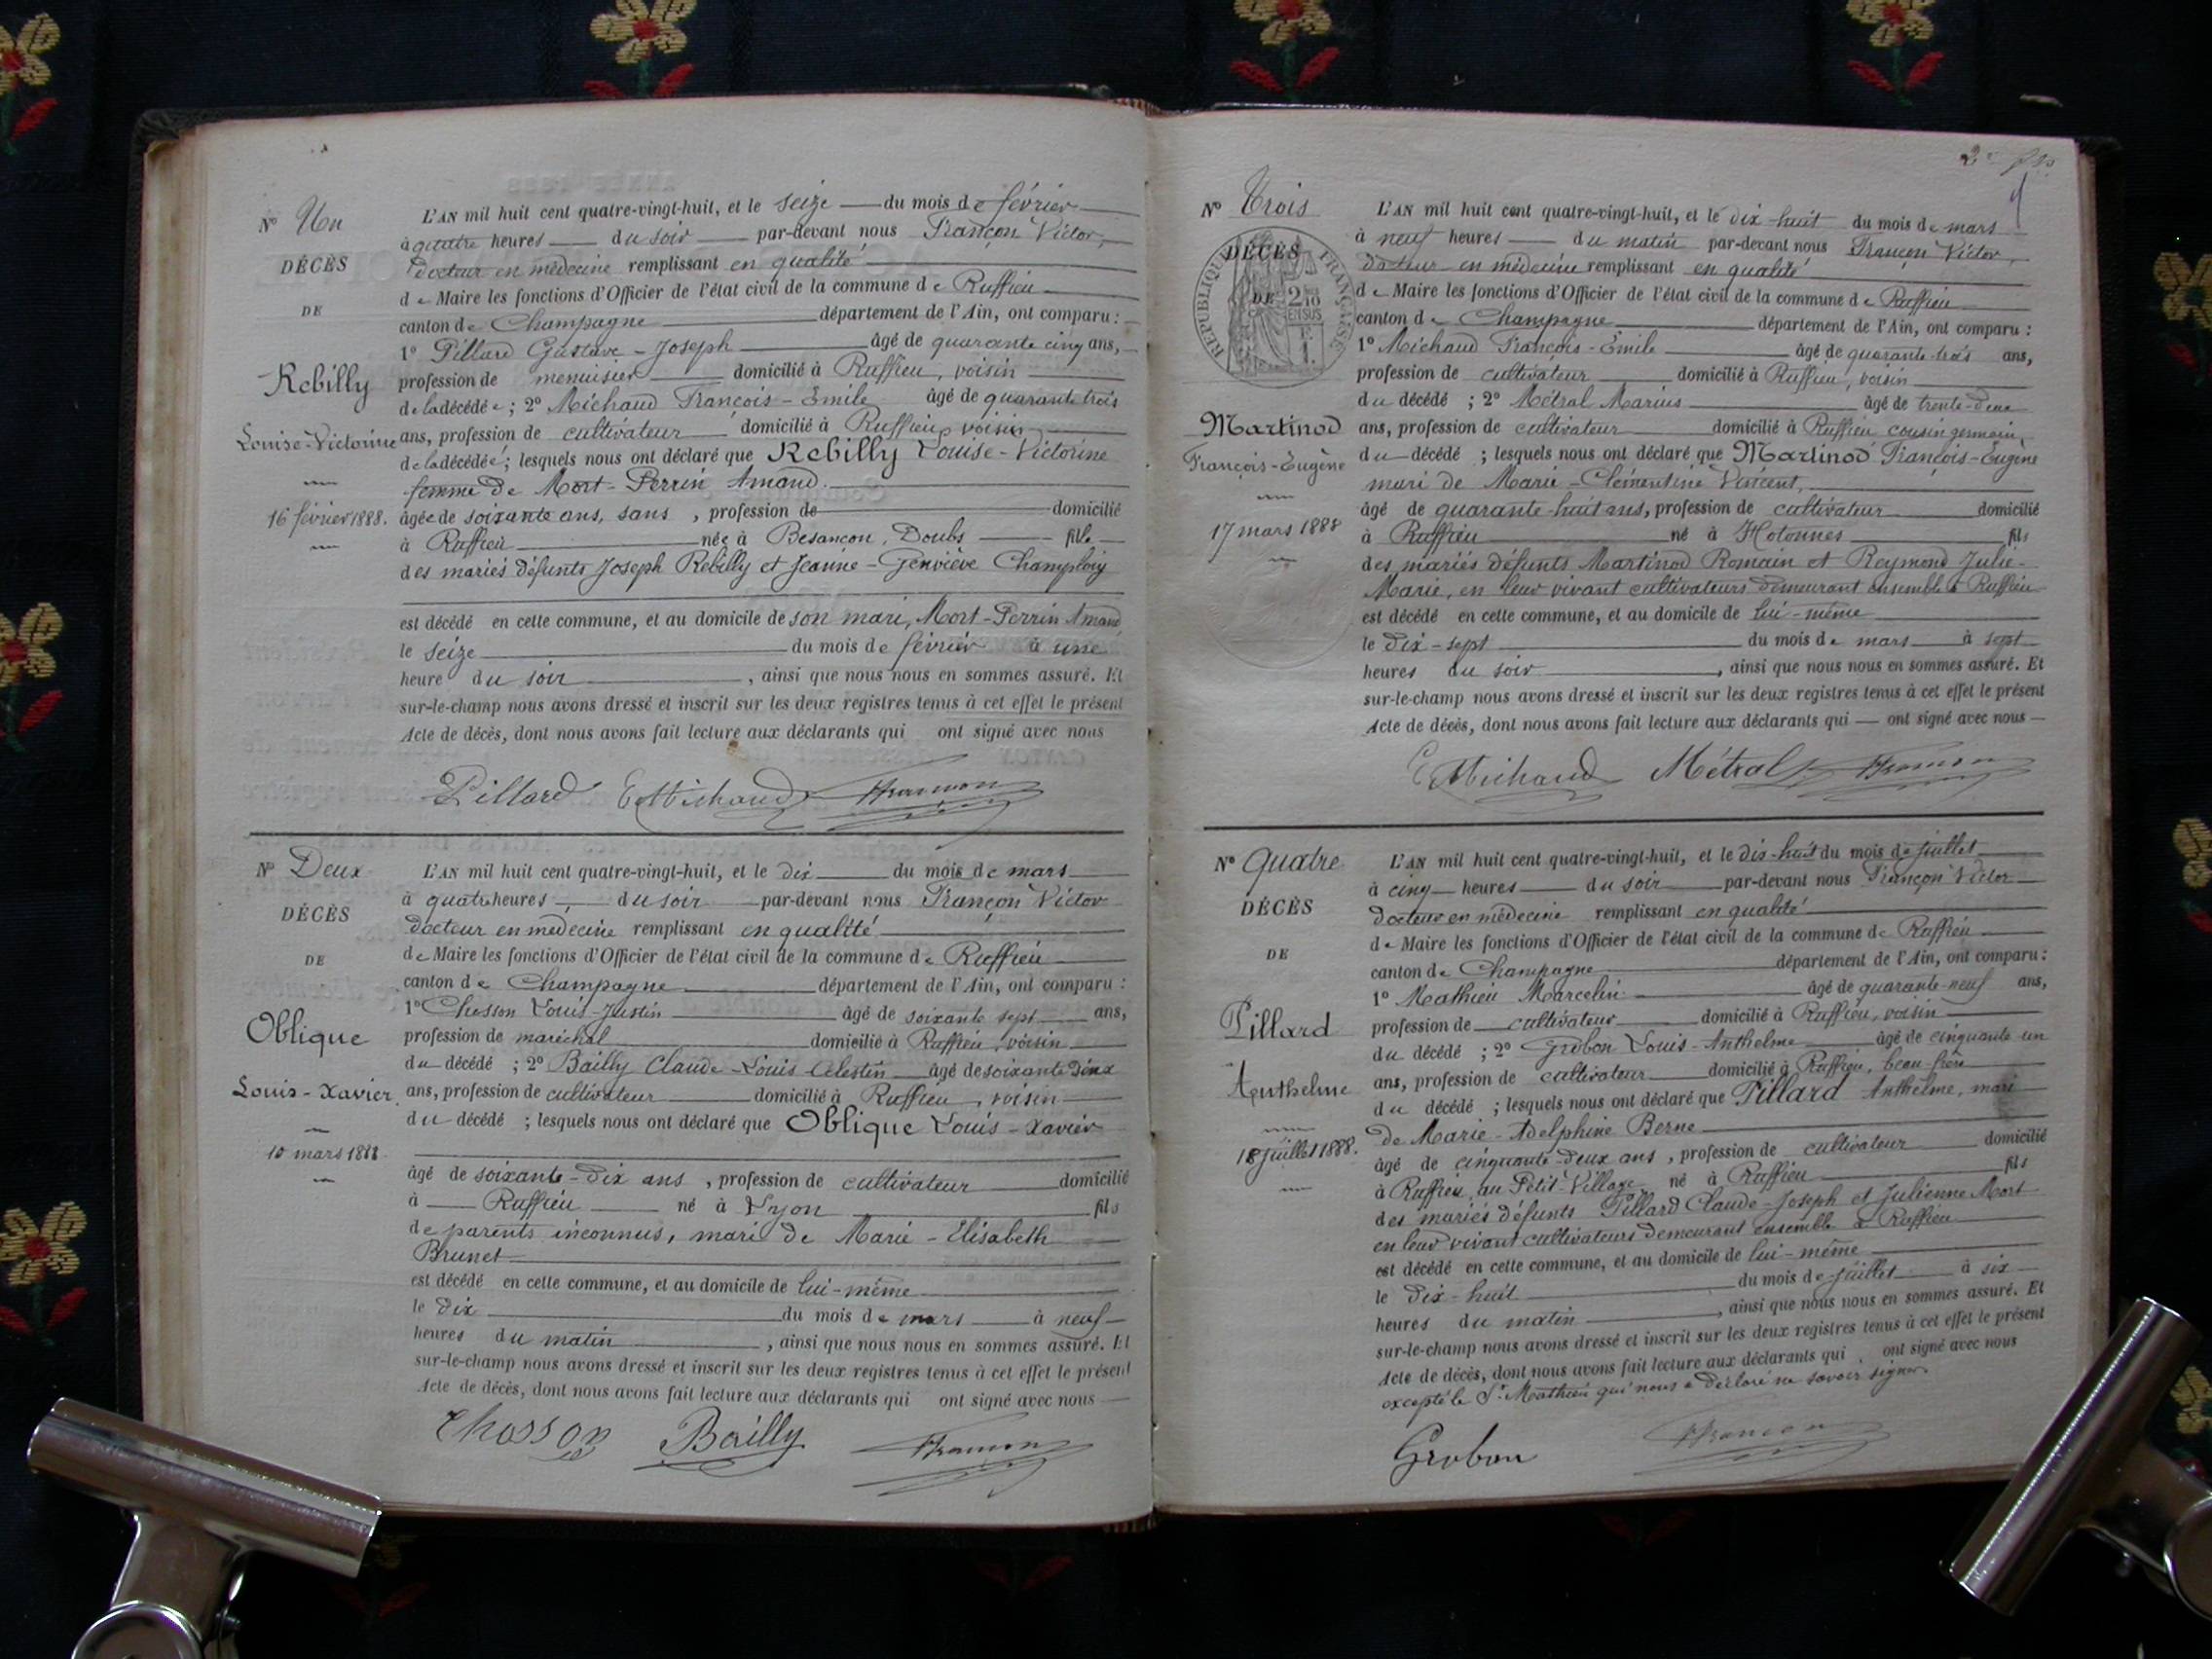 N° Un
DÉCÈS
DE
Rebilly
Louise-Victorine
16 février 1888.
L'AN mil huit cent quatre-vingt-huit, et le seize du mois de février
à quatre heures du soir par-devant nous Françon Victor,
docteur en médecine remplissant en qualité
de Maire les fonctions d'Officier de l'état civil de la commune de Ruffieu
canton de Champagne département de l'Ain, ont comparu :
1° Pillard Gustave-Joseph âgé de quarante cinq ans,
profession de menuisier domicilié à Ruffieu, voisin
de la décédée ; 2° Michaud François-Emile âgé de quarante trois
ans, profession de cultivateur domicilié à Ruffieu, voisin
de la décédée ; lesquels nous ont déclaré que Rebilly Louise-Victorine
femme de Mort-Perrin Amand.
âgée de soixante ans, sans , profession de domicilié
à Ruffieu née à Besançon, Doubs fille
des mariés défunts Joseph Rebilly et Jeanne-Geneviève Champloiy
est décédé en cette commune, et au domicile de son mari, Mort-Perrin Amand
le seize du mois de février à une
heure du soir , ainsi que nous nous en sommes assuré. Et
sur-le-champ nous avons dressé et inscrit sur les deux registres tenus à cet effet le présent
Acte de décès, dont nous avons fait lecture aux déclarants qui ont signé avec nous
Pillard E Michaud Françon
N° Deux
DÉCÈS
DE
Oblique
Louis-Xavier
10 mars 1888
L'AN mil huit cent quatre-vingt-huit, et le dix du mois de mars
à quatre heures du soir par-devant nous Françon Victor
docteur en médecine remplissant en qualité
de Maire les fonctions d'Officier de l'état civil de la commune de Ruffieu
canton de Champagne département de l'Ain, ont comparu :
1° Chosson Louis-Justin âgé de soixante sept ans,
profession de maréchal domicilié à Ruffieu, voisin
du décédé ; 2° Bailly Claude-Louis Célestin âgé de soixante deux
ans, profession de cultivateur domicilié à Ruffieu, voisin
du décédé ; lesquels nous ont déclaré que Oblique Louis-Xavier
âgé de soixante-dix ans , profession de cultivateur domicilié
à Ruffieu né à Lyon fils
de parents inconnus, mari de Marie-Elisabeth
Brunet
est décédé en cette commune, et au domicile de lui-même
le dix du mois de mars à neuf
heures du matin , ainsi que nous nous en sommes assuré. Et
sur-le-champ nous avons dressé et inscrit sur les deux registres tenus à cet effet le présent
Acte de décès, dont nous avons fait lecture aux déclarants qui ont signé avec nous
Chosson Bailly Françon
N° Trois
DÉCÈS
DE
RÉPUBLIQUE FRANÇAISE
2/10
EN SUS
1F.
Martinod
François-Eugène
17 mars 1888
L'AN mil huit cent quatre-vingt-huit, et le dix huit du mois de mars
à neuf heures du matin par-devant nous Françon Victor,
docteur en médecine remplissant en qualité
de Maire les fonctions d'Officier de l'état civil de la commune de Ruffieu
canton de Champagne département de l'Ain, ont comparu :
1° Michaud François-Emile âgé de quarante-trois ans,
profession de cultivateur domicilié à Ruffieu, voisin
du décédé ; 2° Métral Marius âgé de trente-deux
ans, profession de cultivateur domicilié à Ruffieu cousin germain,
du décédé ; lesquels nous ont déclaré que Martinod François-Eugène
mari de Marie-Clémentine Vincent,
âgé de quarante-huit ans, profession de cultivateur domicilié
à Ruffieu né à Hotonnes fils
des mariés défunts Martinod Romain et Reymond Julie-
Marie, en leur vivant cultivateurs demeurant ensemble à Ruffieu
est décédé en cette commune, et au domicile de lui-même
le dix-sept du mois de mars à sept
heures du soir , ainsi que nous nous en sommes assuré. Et
sur-le-champ nous avons dressé et inscrit sur les deux registres tenus à cet effet le présent
Acte de décès, dont nous avons fait lecture aux déclarants qui ont signé avec nous
E Michaud Métral Françon
N° Quatre
DÉCÈS
DE
Pillard
Anthelme
18 juillet 1888.
L'AN mil huit cent quatre-vingt-huit, et le dix-huit du mois de juillet
à cinq heures du soir par-devant nous Françon Victor
docteur en médecine remplissant en qualité
de Maire les fonctions d'Officier de l'état civil de la commune de Ruffieu
canton de Champagne département de l'Ain, ont comparu :
1° Mathieu Marcelin âgé de quarante-neuf ans,
profession de cultivateur domicilié à Ruffieu, voisin
du décédé ; 2° Grobon Louis-Anthelme âgé de cinquante un
ans, profession de cultivateur domicilié à Ruffieu, beau-frère
du décédé ; lesquels nous ont déclaré que Pillard Anthelme, mari
de Marie-Adelphine Berne
âgé de cinquante-deux ans , profession de cultivateur domicilié
à Ruffieu au Petit-Village né à Ruffieu fils
des mariés défunts Pillard Claude-Joseph et Julienne Mort
en leur vivant cultivateurs demeurant ensemble à Ruffieu
est décédé en cette commune, et au domicile de lui-même
le dix-huit du mois de juillet à six
heures du matin , ainsi que nous nous en sommes assuré. Et
sur-le-champ nous avons dressé et inscrit sur les deux registres tenus à cet effet le présent
Acte de décès, dont nous avons fait lecture aux déclarants qui ont signé avec nous
excepté le Sr Mathieu qui nous a déclaré ne savoir signer.
Grobon Françon